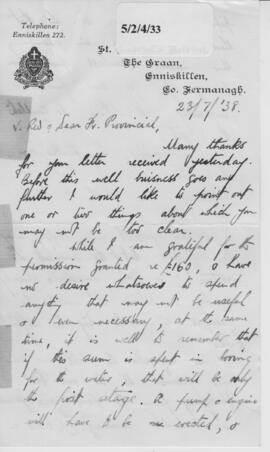 Telephone:
Enniskillen 272.
5/2/4/33
St.
The Graan,
Enniskillen,
Co. Fermanagh.
23/7/'38.
V. Rev & Dear Fr. Provincial,
Many thanks
for your letter received yesterday.
Before this well buisness goes any
further I would like to point out
one or two things about which you
may not be too clear.
While I am grateful for the
permission granted re £160, & have
no desire whatsoever to spend
anything that may not be useful
& even necessary, at the same
time, it is well to remember that
if this sum is spent in boring
for the water, that will be only
the first stage. A pump & engine
will have to be erected, &